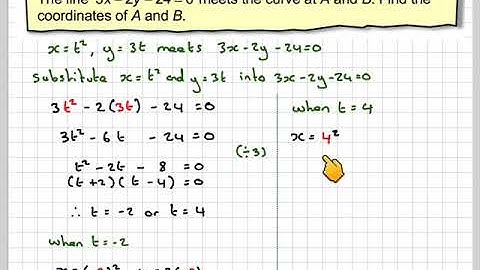 The line 3x – 2y – 24 = 0 meets the curve at A and B. Find the
coordinates of A and B.
x = t², y = 3t meets 3x - 2y - 24 = 0
Substitute x = t² and y = 3t into 3x - 2y - 24 = 0
3t² - 2(3t) - 24 = 0
3t² - 6t - 24 = 0
t² - 2t - 8 = 0 (÷3)
(t + 2)(t - 4) = 0
∴ t = -2 or t = 4
when t = -2
when t = 4
x = 4²